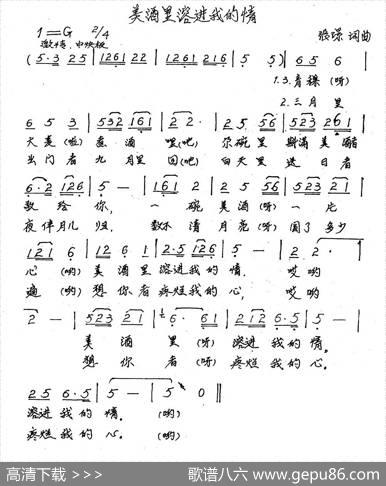 美酒里溶进我的情
1=G 2/4 张璟 词曲
激情、中快板
(5·3 25 | 1261 22 | 1261 216 | 5 5) | 65 6 |
1.3.青稞(呀)
2.三月里
6 5 3 | 523 2161 | 2 2· | 25 56 | 523 261 |
大麦(啦)煮酒 嘿(吧) 尔碗里 斟满美酒
出门者 九月里 回(吧) 白天里 送日者
6·2 126 | 5 — | 161 2 | 25 56 | 523 21 |
敬给你, 一碗美酒(呀)一片
夜伴月儿归, 数不清月亮(呀)圆了多少
121 6 | 12 6 1 | 2·5 126 | 5 — | 2 2· |
心(哟)美酒里溶进我的情. 哎哟
遍(哟)想你者疼烂我的心, 哎哟
2 — | 523 21 | 6· 61 | 212 6·5 | 5 — |
美酒里(呀)溶进我的情。
想你者(呀)疼烂我的心。
25 6·5 | 5 — | 5 0 ‖
溶进我的情. (哟)
疼烂我的心. (哟)
高清下载 >>> 歌谱八六 www.gepu86.com